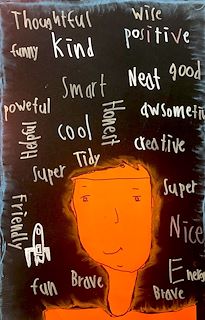 Thoughtful
Wise
funny
Kind
positive
Smart
Neat
good
poweful
Happy
cool
Honest
awsometiv
creative
Super
Tidy
Super
Friendly
Nice
fun
Brave
Brave